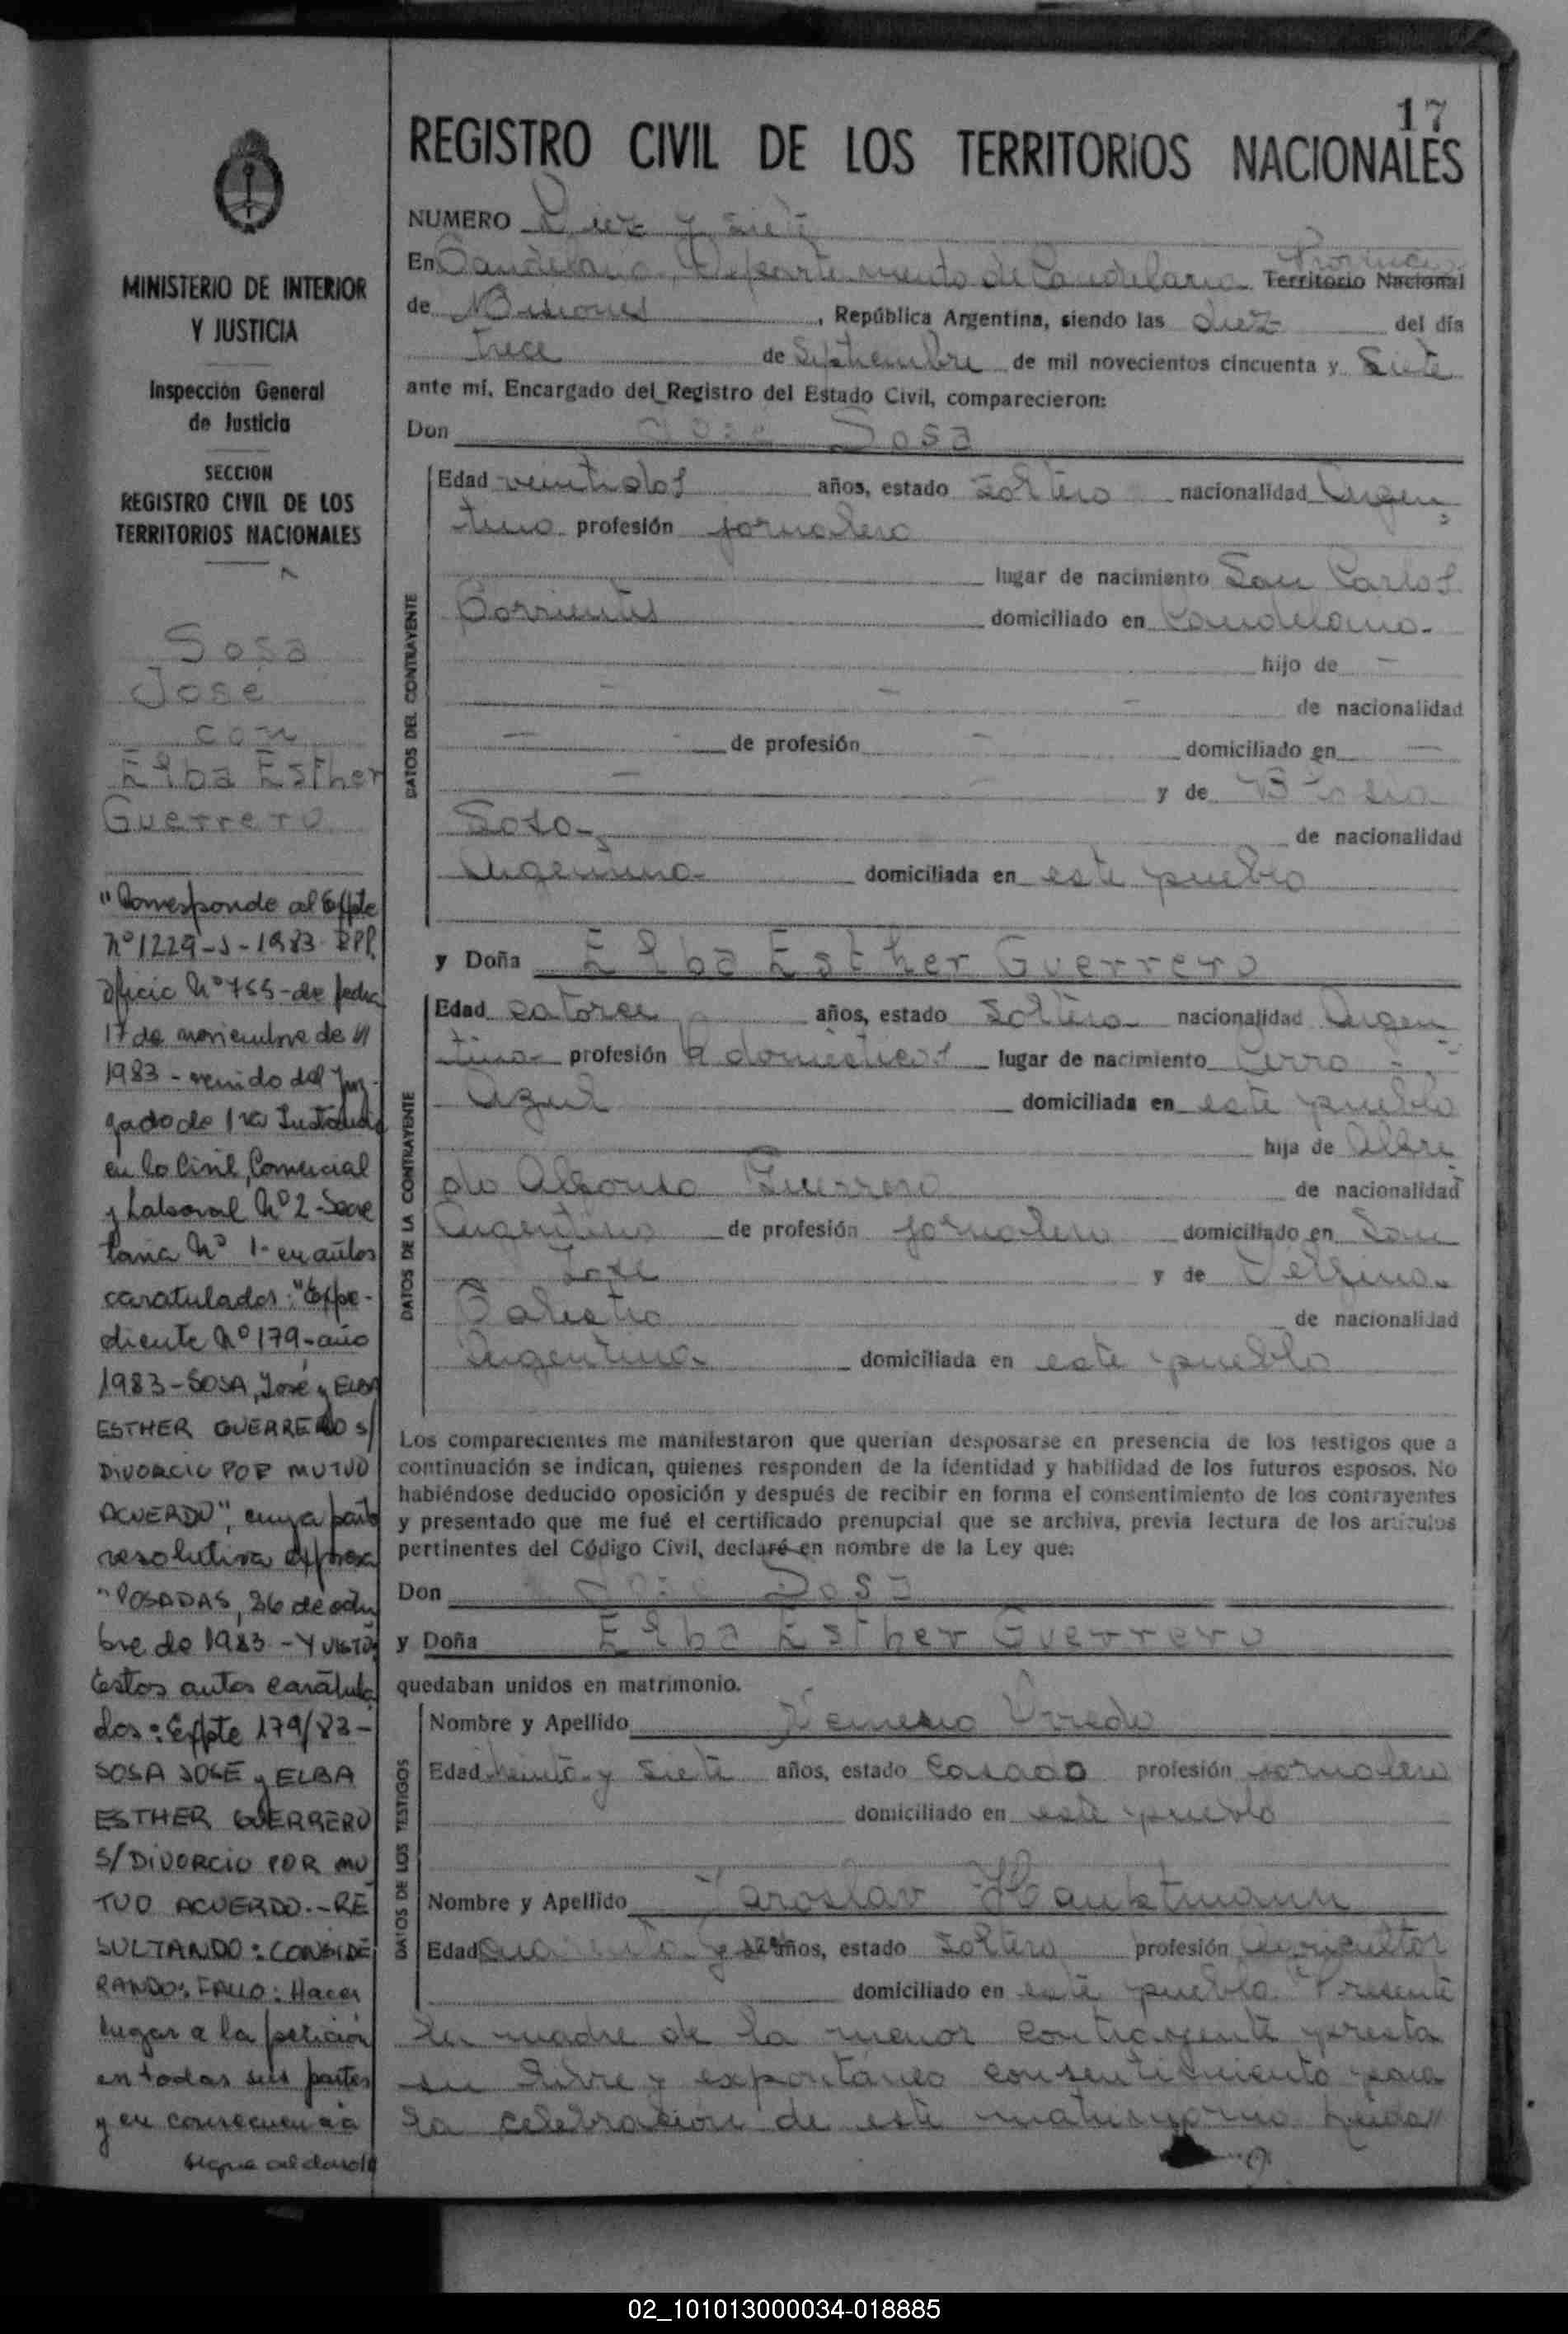 17
REGISTRO CIVIL DE LOS TERRITORIOS NACIONALES
MINISTERIO DE INTERIOR
Y JUSTICIA
Inspección General
de Justicia
SECCION
REGISTRO CIVIL DE LOS
TERRITORIOS NACIONALES
Sosa
José
con
Elba Esther
Guerrero
"Corresponde al Expte
Nº 1229-S-1983 RPP.
Oficio Nº 755-de fecha
17 de noviembre de
1983 - venido del Juz-
gado de 1ra Instancia
en lo Civil, Comercial
y Laboral Nº 2-Secre
taria Nº 1- en autos
caratulados: "Expe-
diente Nº 179-año
1983-SOSA, José y ELBA
ESTHER GUERRERO s/
DIVORCIO POR MUTUO
ACUERDO", cuya parte
resolutiva expresa
"POSADAS, 26 de octu
bre de 1983 - Y VISTOS
Estos autos caratula
dos: Expte 179/83-
SOSA JOSE y ELBA
ESTHER GUERRERO
S/DIVORCIO POR MU
TUO ACUERDO.-RE
SULTANDO: CONSIDE
RANDO: FALLO: Hacer
lugar a la petición
en todas sus partes
y en consecuencia
sigue al dorso
NUMERO Diez y siete
En Candelaria, Departamento de Candelaria Provincia Territorio Nacional
de Misiones, República Argentina, siendo las diez del día
trece de Septiembre de mil novecientos cincuenta y Siete
ante mí, Encargado del Registro del Estado Civil, comparecieron:
Don José Sosa
DATOS DEL CONTRAYENTE
Edad veintidos años, estado soltero nacionalidad Argen
tino profesión jornalero
lugar de nacimiento San Carlos
Corrientes domiciliado en Candelaria.
hijo de -
- - - de nacionalidad
- de profesión - domiciliado en -
- - y de
Soto- de nacionalidad
Argentina domiciliada en este pueblo
y Doña Elba Esther Guerrero
DATOS DE LA CONTRAYENTE
Edad catorce años, estado soltera nacionalidad Argen
tina- profesión q domesticos lugar de nacimiento Cerro
Azul domiciliada en este pueblo
hija de Alfre
do Alfonso Guerrero de nacionalidad
Argentino de profesión jornalero domiciliado en San
José y de Delfina
de nacionalidad
Argentina domiciliada en este pueblo
Los comparecientes me manifestaron que querían desposarse en presencia de los testigos que a
continuación se indican, quienes responden de la identidad y habilidad de los futuros esposos. No
habiéndose deducido oposición y después de recibir en forma el consentimiento de los contrayentes
y presentado que me fué el certificado prenupcial que se archiva, previa lectura de los artículos
pertinentes del Código Civil, declaré en nombre de la Ley que:
Don José Sosa
y Doña Elba Esther Guerrero
quedaban unidos en matrimonio.
DATOS DE LOS TESTIGOS
Nombre y Apellido Nemesio
Edad treinta y siete años, estado Casado profesión jornalero
domiciliado en este pueblo
Nombre y Apellido Jaroslav Hauptmann
Edad cuarenta y años, estado soltero profesión agricultor
domiciliado en este pueblo. Presente
la madre de la menor contrayente presta
su libre y expontáneo consentimiento para
la celebración de este matrimonio. Leida
02_101013000034-018885